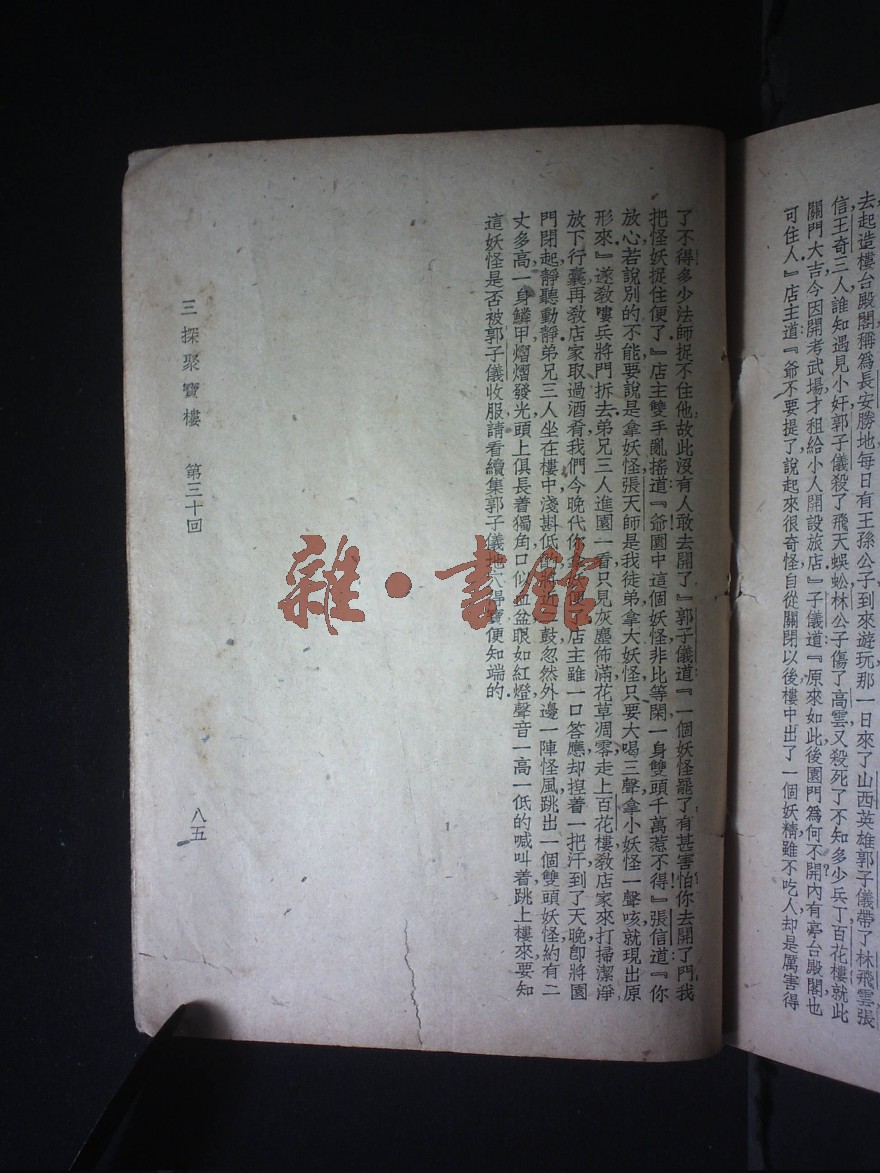 去起造樓台殿閣稱爲長安勝地每日有王孫公子到來遊玩那一日來了山西英雄郭子儀帶了林飛雲張
信王奇三人誰知遇見小奸郭子儀殺了飛天蜈蚣林公子傷了高雲又殺死了不知多少兵丁百花樓就此
關門大吉今因開考武場才租給小人開設旅店』子儀道『原來如此後園門爲何不開內有亭台殿閣也
可住人』店主道『爺不要提了說起來很奇怪自從關閉以後樓中出了一個妖精雖不吃人却是厲害得
了不得多少法師捉不住他故此沒有人敢去開了』郭子儀道『一個妖怪罷了有甚害怕你去開了門我
把怪妖捉住便了』店主雙手亂搖道『爺園中這個妖怪非比等閑一身雙頭千萬惹不得』張信道『你
放心若說別的不能要說是拿妖怪張天師是我徒弟拿大妖怪只要大喝三聲拿小妖怪一聲咳就現出原
形來』遂教嘍兵將門拆去弟兄三人進園一看只見灰塵佈滿花草凋零走上百花樓教店家來打掃潔淨
放下行囊再教店家取過酒肴我們今晚代你拿妖便了店主雖一口答應却揑着一把汗到了天晚卽將園
門閉起靜聽動靜弟兄三人坐在樓中淺斟低鼓忽然外邊一陣怪風跳出一個雙頭妖怪約有二
丈多高一身鱗甲熠熠發光頭上俱長着獨角口似血盆眼如紅燈聲音一高一低的喊叫着跳上樓來要知
這妖怪是否被郭子儀收服請看續集郭子儀地穴得寶便知端的
三探聚寶樓 第三十回
八五
雜·書館